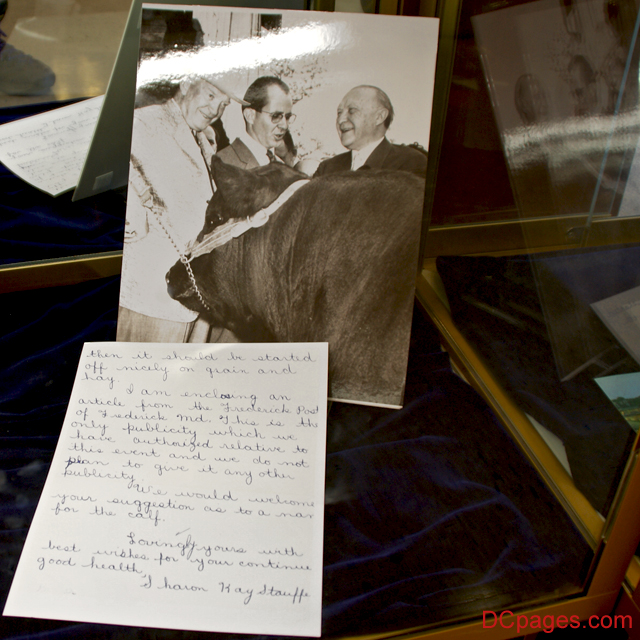 then it should be started
off nicely on grain and
hay.
I am enclosing an
article from the Frederick Post
of Fredick Md. This is the
only publicity which we
have authorized relative to
this event and we do not
plan to give it any other
publicity.
We would welcome
your suggestion as to a nam
for the calf.
Lovingly yours with
best wishes for your continue
good health
Sharon Kay Stauff
DCpages.com